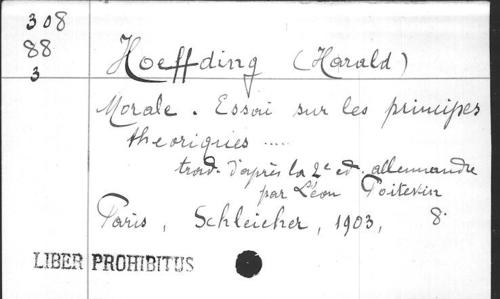 308
88
3
Hoeffding (Harald)
Morale. Essai sur les principes
theoriques .....
trad. d'après la 2e ed. allemande
par Léon Poitevin
Paris, Schleicher, 1903, 8.
LIBER PROHIBITUS